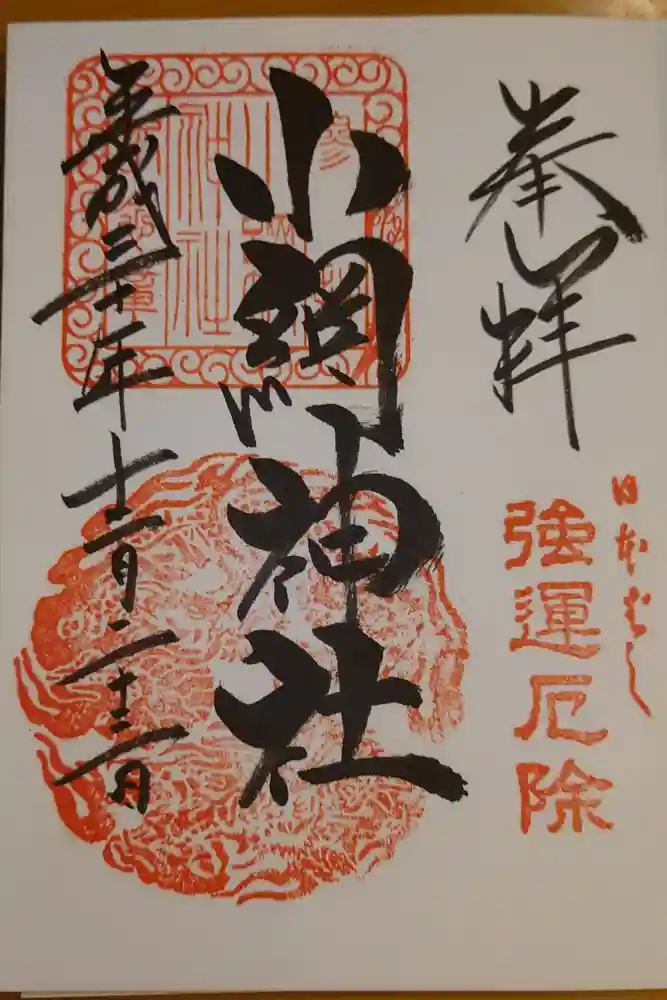 奉拝
日本ばし
強運厄除
小網神社
平成三十年十二月二十三日